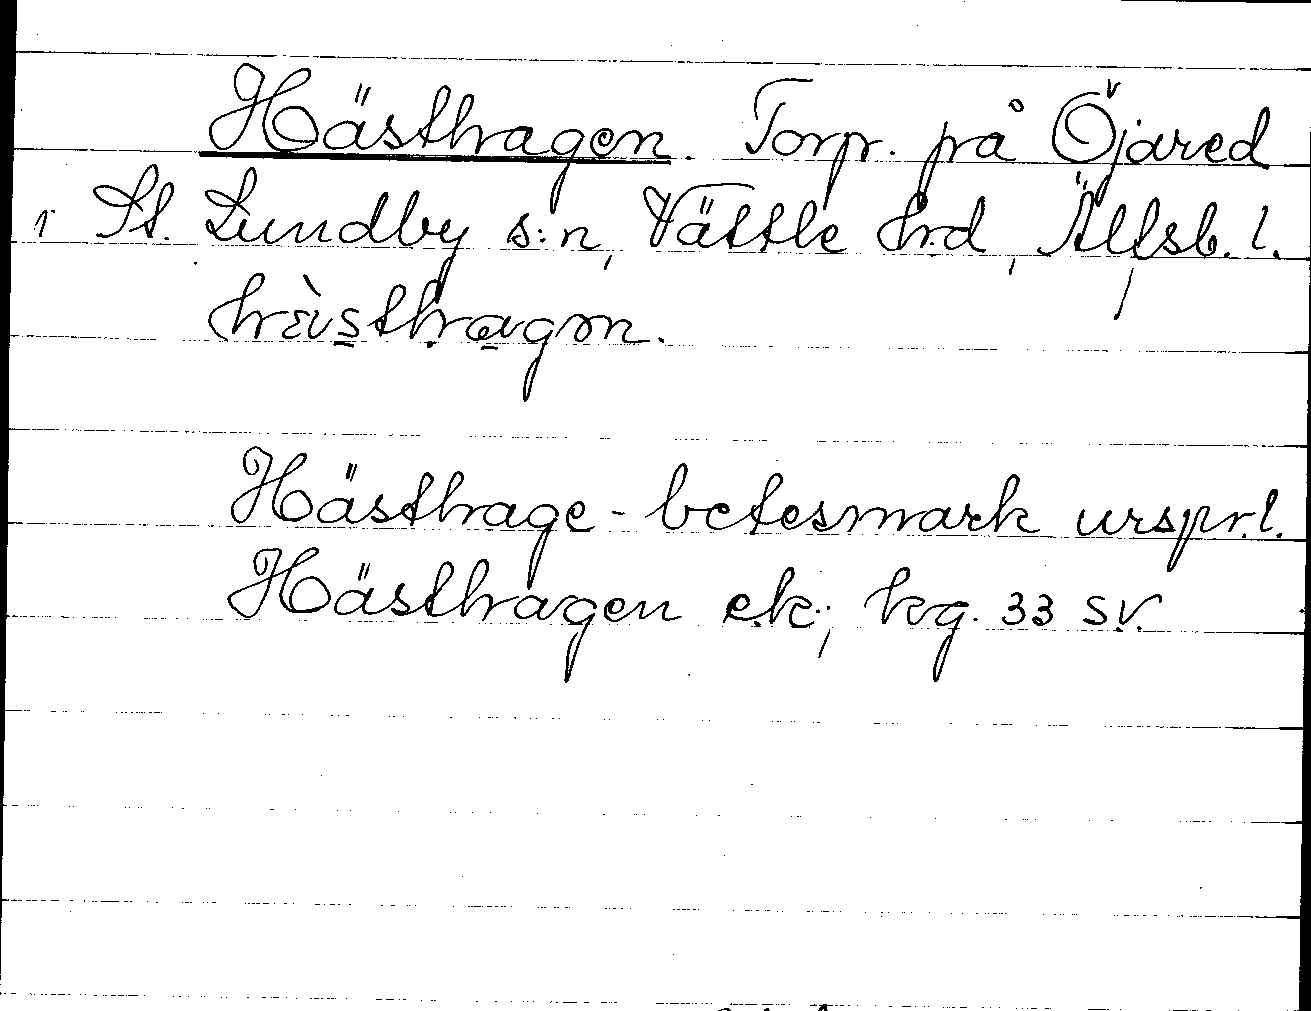 Hästhagen. Torp. på Öjared
i St. Lundby s:n, Vättle hd, Älfsb. l.
Hästhage - betesmark urspr.l.
Hästhagen e.k.; kg. 33 SV.